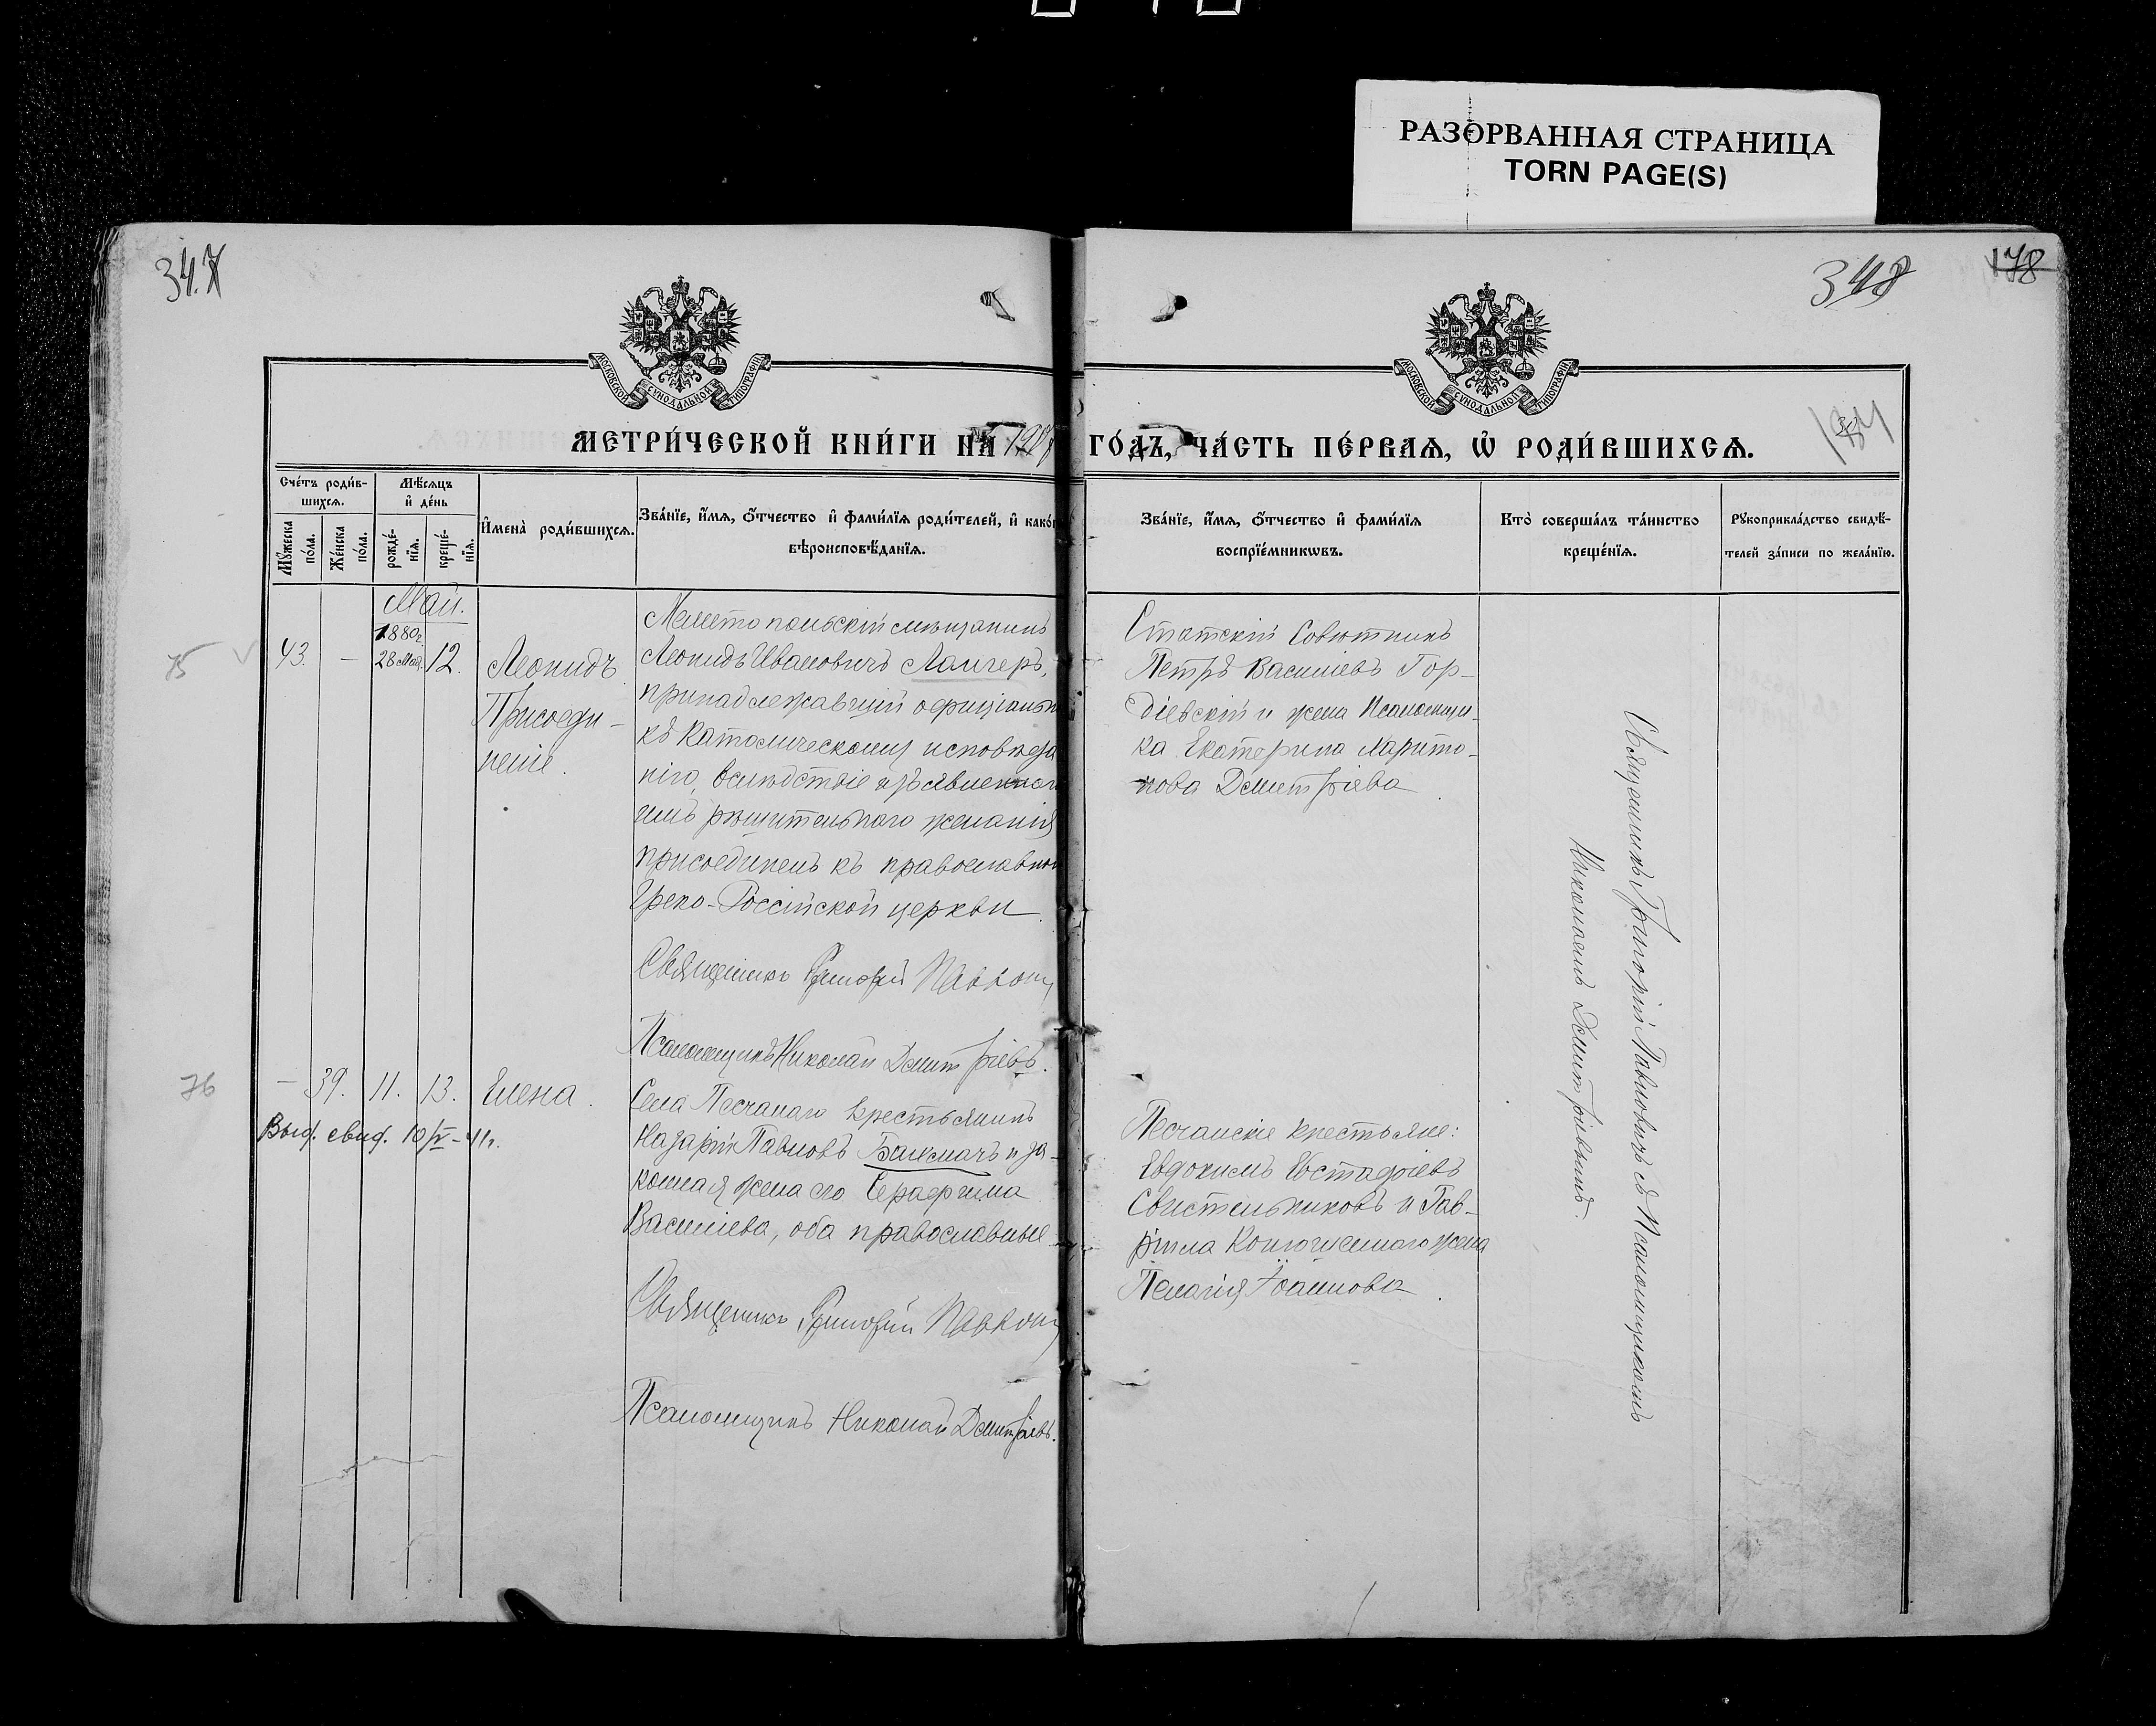 РАЗОРВАННАЯ СТРАНИЦА
TORN PAGE(S)
34.7
348
178
184
МОСКОВСКОЙ СУНОДАЛЬНОЙ ТИПОГРАФІИ
МОСКОВСКОЙ СУНОДАЛЬНОЙ ТИПОГРАФІИ
МЕТРИ́ЧЕСКОЙ КНИ́ГИ НА 1907 ГО́ДЪ, ЧА́СТЬ ПЕ́РВАЯ, Ѡ҆ РОДИ́ВШИХСЯ.
Сче́тъ роди́в-
шихся.
Мѣ́сяцъ
и҆ де́нь
Мꙋ́жеска
по́ла.
Же́нска
по́ла.
рожде́-
нїѧ.
креще́-
нїѧ.
И҆мена̀ роди́вшихся.
Зва́нїе, и҆́мѧ, ѻ҆́тчество и҆ фами́лїѧ роди́телей, и҆ како́г
вѣроисповѣ́данїѧ.
Зва́нїе, и҆́мѧ, ѻ҆́тчество и҆ фами́лїѧ
воспрїе́мникѡвъ.
Кто̀ соверша́лъ та́инство
креще́нїѧ.
Рꙋкоприкла́дство свидѣ́-
телей за́писи по жела́нїю.
Май.
75
43.
—
1880г
28 Мая
12.
Леонидъ
Присоеди-
неніе.
Мелитопольскій мѣщанинъ
Леонидъ Ивановичъ Лангеръ,
принадлежавшій офиціально
къ Католическому исповѣда
нію, вслѣдствіе изъявленнаг
имъ рѣшительнаго желанія
присоединенъ къ православной
Греко-Россійской церкви.
Священникъ Григорій Павлов
Псаломщикъ Николай Дмитріевъ.
Статскій Совѣтникъ
Петръ Василіевъ Гор-
діевскій и жена Псаломщи-
ка Екатерина Харито-
нова Дмитріева.
Священникъ Григорій Павловичъ съ Псаломщикомъ
Николаемъ Дмитріевымъ.
76
—
39.
11.
13.
Елена.
Выд. свид. 10/V-41г.
Села Песчанаго крестьянинъ
Назарій Павловъ Баклмачъ и за-
конная жена его Серафима
Василіева, оба православные.
Священникъ Григорій Павлов
Псаломщикъ Николай Дмитріевъ.
Песчанскіе крестьяне:
Евдокимъ Евстафіевъ
Свистельниковъ и Гав-
ріила жена
Пелагія Іоаннова.